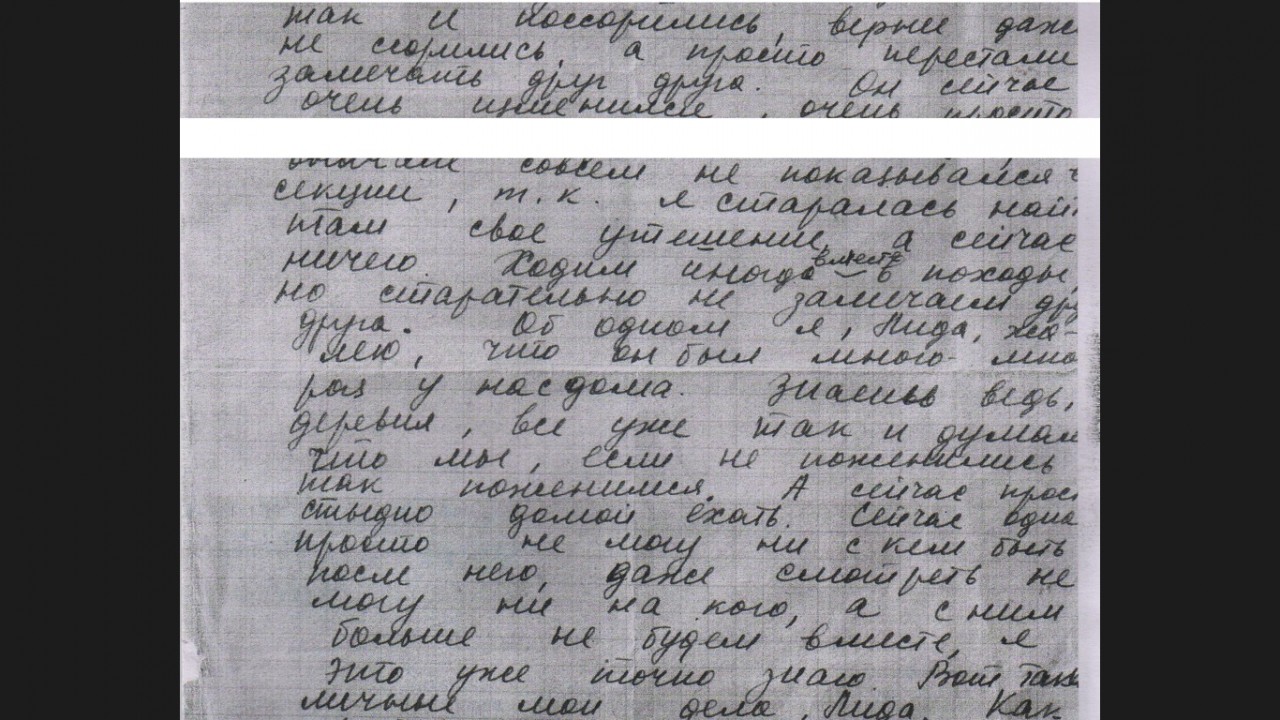 так и поссорились, верней даже
не ссорились, а просто перестали
замечать друг друга. Он сейчас
очень изменился, очень просто
совсем не показывался в
секции, т.к. я старалась найт
там свое утешение, а сейчас
ничего. Ходим иногда вместе в походы,
но старательно не замечаем дру
друга. Об одном я, Лида, жа-
лею, что он был много-мно
раз у нас дома. Знаешь ведь,
деревня, все уже так и думал
что мы, если не поженились
так поженимся. А сейчас прос
стыдно домой ехать. Сейчас одна
просто не могу ни с кем быть
после него, даже смотреть не
могу ни на кого, а с ним
больше не будем вместе, я
это уже точно знаю. Вот такие
личные мои дела, Лида. Как